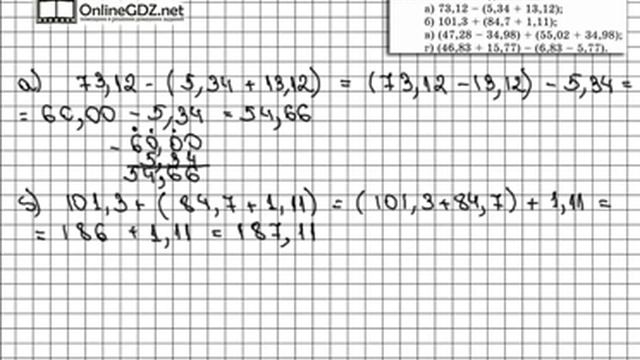 OnlineGDZ.net
а) 73,12 − (5,34 + 13,12);
б) 101,3 + (84,7 + 1,11);
в) (47,28 − 34,98) + (55,02 + 34,98);
г) (46,83 + 15,77) − (6,83 − 5,77).
а) 73,12 - (5,34 + 13,12) = (73,12 - 13,12) - 5,34 =
= 60,00 - 5,34 = 54,66
- 60,00
5,34
54,66
б) 101,3 + (84,7 + 1,11) = (101,3 + 84,7) + 1,11 =
= 186 + 1,11 = 187,11